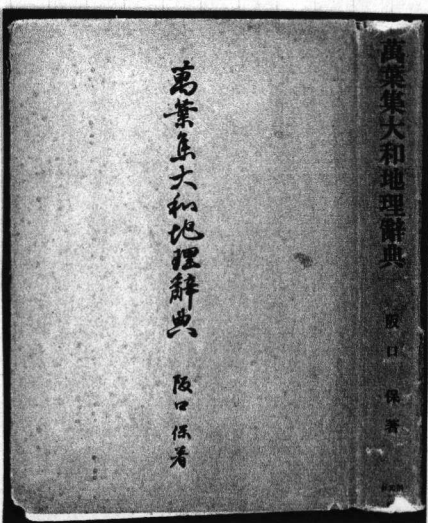 萬葉集大和地理辭典
阪口保著
萬葉集大和地理辭典
阪口保著